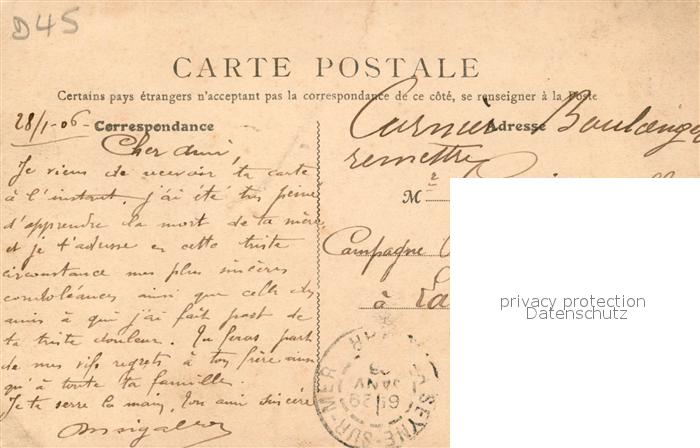 D45
CARTE POSTALE
Certains pays étrangers n'acceptant pas la correspondance de ce côté, se renseigner à la Poste
28/1-06 Correspondance
Adresse Boulanger
remettre
Cher Ami,
Je viens de recevoir ta carte
à l'instant. j'ai été très peiné
d'apprendre la mort de ta mère
et je t'adresse en cette triste
circonstance mes plus sincères
condoléances ainsi que celles des
amis à qui j'ai fait part de
ta triste douleur. Tu feras part
de mes vifs regrets à ton frère ainsi
qu'à toute ta famille.
Je te serre la main, ton ami sincère
Mr
Campagne
à La
LA SEYNE-SUR-MER VAR
JANV
privacy protection
Datenschutz